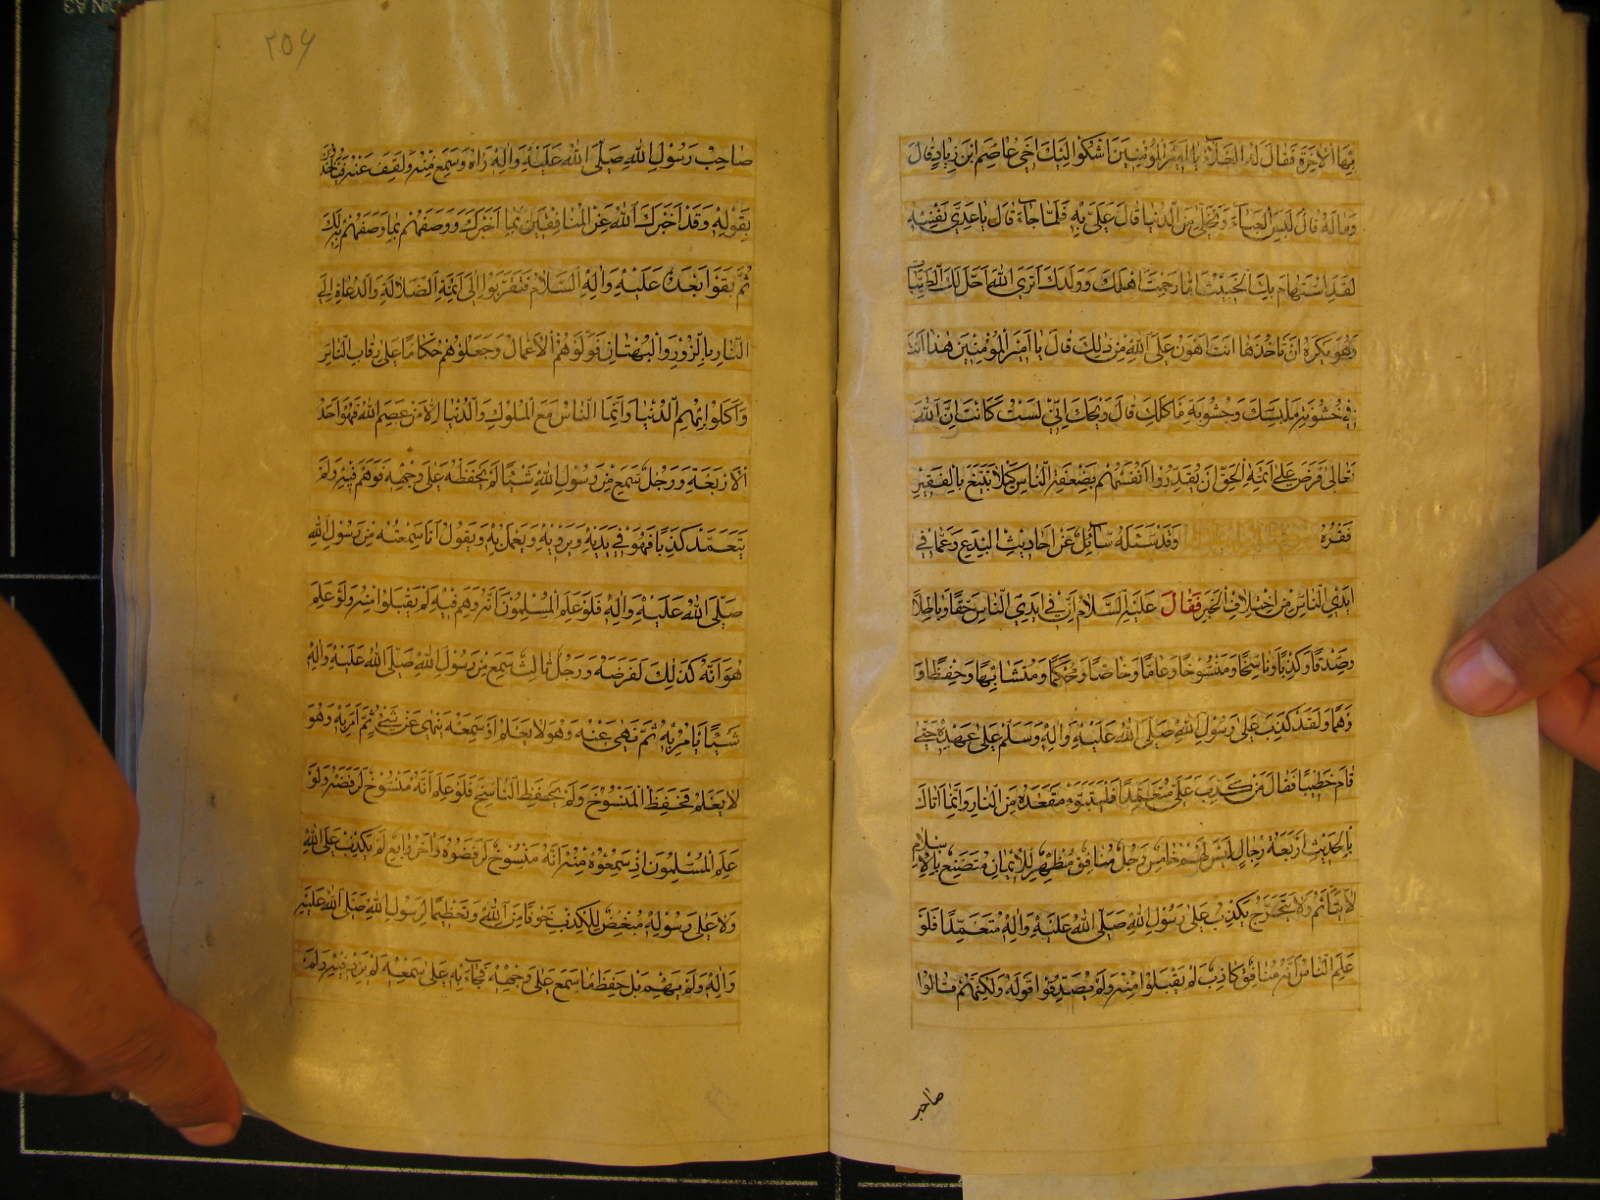 بِهَا الْاٰخِرَةَ فَقَالَ لَهُ الْعَلَاءُ يَا اَمِيْرَ الْمُؤْمِنِيْنَ اَشْكُو اِلَيْكَ اَخِيْ عَاصِمَ ابْنَ زِيَادٍ قَالَ
وَمَا لَهُ قَالَ لَبِسَ الْعَبَاءَ وَتَخَلّٰى مِنَ الدُّنْيَا قَالَ عَلَيَّ بِهِ فَلَمَّا جَاءَ قَالَ يَا عَدِيَّ نَفْسِهِ
لَقَدِ اسْتَهَامَ بِكَ الْخَبِيْثُ اَمَا رَحِمْتَ اَهْلَكَ وَوَلَدَكَ اَتَرَى اللّٰهَ اَحَلَّ لَكَ الطَّيِّبَاتِ
وَهُوَ يَكْرَهُ اَنْ تَاْخُذَهَا اَنْتَ اَهْوَنُ عَلَى اللّٰهِ مِنْ ذٰلِكَ قَالَ يَا اَمِيْرَ الْمُؤْمِنِيْنَ هٰذَا اَنْتَ
فِيْ خُشُوْنَةِ مَلْبَسِكَ وَجُشُوْبَةِ مَاْكَلِكَ قَالَ وَيْحَكَ اِنِّيْ لَسْتُ كَاَنْتَ اِنَّ اللّٰهَ
تَعَالٰى فَرَضَ عَلٰى اَئِمَّةِ الْحَقِّ اَنْ يُقَدِّرُوْا اَنْفُسَهُمْ بِضَعَفَةِ النَّاسِ كَيْلَا يَتَبَيَّغَ بِالْفَقِيْرِ
فَقْرُهُ وَقَدْ سَئَلَهُ سَآئِلٌ عَنْ اَحَادِيْثِ الْبِدَعِ وَعَمَّا فِيْ
اَيْدِي النَّاسِ مِنِ اخْتِلَافِ الْخَبَرِ فَقَالَ عَلَيْهِ السَّلَامُ اِنَّ فِيْ اَيْدِي النَّاسِ حَقًّا وَبَاطِلًا
وَصِدْقًا وَكَذِبًا وَنَاسِخًا وَمَنْسُوْخًا وَعَامًّا وَخَاصًّا وَمُحْكَمًا وَمُتَشَابِهًا وَحِفْظًا وَ
وَهْمًا وَلَقَدْ كُذِبَ عَلٰى رَسُوْلِ اللّٰهِ صَلَّى اللّٰهُ عَلَيْهِ وَاٰلِهِ وَسَلَّمَ عَلٰى عَهْدِهِ حَتّٰى
قَامَ خَطِيْبًا فَقَالَ مَنْ كَذَبَ عَلَيَّ مُتَعَمِّدًا فَلْيَتَبَوَّءْ مَقْعَدَهُ مِنَ النَّارِ وَاِنَّمَا اَتَاكَ
بِالْحَدِيْثِ اَرْبَعَةُ رِجَالٍ لَيْسَ لَهُمْ خَامِسٌ رَجُلٌ مُنَافِقٌ مُظْهِرٌ لِلْاِيْمَانِ مُتَصَنِّعٌ بِالْاِسْلَامِ
لَا يَتَاَثَّمُ وَلَا يَتَحَرَّجُ يَكْذِبُ عَلٰى رَسُوْلِ اللّٰهِ صَلَّى اللّٰهُ عَلَيْهِ وَاٰلِهِ مُتَعَمِّدًا فَلَوْ
عَلِمَ النَّاسُ اَنَّهُ مُنَافِقٌ كَاذِبٌ لَمْ يَقْبَلُوْا مِنْهُ وَلَمْ يُصَدِّقُوْا قَوْلَهُ وَلٰكِنَّهُمْ قَالُوْا
صاحب
٢٥٦
صَاحِبُ رَسُوْلِ اللّٰهِ صَلَّى اللّٰهُ عَلَيْهِ وَاٰلِهِ رَاٰهُ وَسَمِعَ مِنْهُ وَلَقِفَ عَنْهُ فَيَاْخُذُوْنَ
بِقَوْلِهِ وَقَدْ اَخْبَرَكَ اللّٰهُ عَنِ الْمُنَافِقِيْنَ بِمَا اَخْبَرَكَ وَوَصَفَهُمْ بِمَا وَصَفَهُمْ بِهِ لَكَ
ثُمَّ بَقُوْا بَعْدَهُ عَلَيْهِ وَاٰلِهِ السَّلَامُ فَتَقَرَّبُوْا اِلٰى اَئِمَّةِ الضَّلَالَةِ وَالدُّعَاةِ اِلَى
النَّارِ بِالزُّوْرِ وَالْبُهْتَانِ فَوَلَّوْهُمُ الْاَعْمَالَ وَجَعَلُوْهُمْ حُكَّامًا عَلٰى رِقَابِ النَّاسِ
وَاَكَلُوْا بِهِمِ الدُّنْيَا وَاِنَّمَا النَّاسُ مَعَ الْمُلُوْكِ وَالدُّنْيَا اِلَّا مَنْ عَصَمَ اللّٰهُ فَهُوَ اَحَدُ
الْاَرْبَعَةِ وَرَجُلٌ سَمِعَ مِنْ رَسُوْلِ اللّٰهِ شَيْئًا لَمْ يَحْفَظْهُ عَلٰى وَجْهِهِ فَوَهَمَ فِيْهِ وَلَمْ
يَتَعَمَّدْ كَذِبًا فَهُوَ فِيْ يَدَيْهِ وَيَرْوِيْهِ وَيَعْمَلُ بِهِ وَيَقُوْلُ اَنَا سَمِعْتُهُ مِنْ رَسُوْلِ اللّٰهِ
صَلَّى اللّٰهُ عَلَيْهِ وَاٰلِهِ فَلَوْ عَلِمَ الْمُسْلِمُوْنَ اَنَّهُ وَهِمَ فِيْهِ لَمْ يَقْبَلُوْا مِنْهُ وَلَوْ عَلِمَ
هُوَ اَنَّهُ كَذٰلِكَ لَرَفَضَهُ وَرَجُلٌ ثَالِثٌ سَمِعَ مِنْ رَسُوْلِ اللّٰهِ صَلَّى اللّٰهُ عَلَيْهِ وَاٰلِهِ
شَيْئًا يَاْمُرُ بِهِ ثُمَّ نَهٰى عَنْهُ وَهُوَ لَا يَعْلَمُ اَوْ سَمِعَهُ يَنْهٰى عَنْ شَيْءٍ ثُمَّ اَمَرَ بِهِ وَهُوَ
لَا يَعْلَمُ فَحَفِظَ الْمَنْسُوْخَ وَلَمْ يَحْفَظِ النَّاسِخَ فَلَوْ عَلِمَ اَنَّهُ مَنْسُوْخٌ لَرَفَضَهُ وَلَوْ
عَلِمَ الْمُسْلِمُوْنَ اِذْ سَمِعُوْهُ مِنْهُ اَنَّهُ مَنْسُوْخٌ لَرَفَضُوْهُ وَاٰخَرُ رَابِعٌ لَمْ يَكْذِبْ عَلَى اللّٰهِ
وَلَا عَلٰى رَسُوْلِهِ مُبْغِضٌ لِلْكَذِبِ خَوْفًا مِنَ اللّٰهِ وَتَعْظِيْمًا لِرَسُوْلِ اللّٰهِ صَلَّى اللّٰهُ عَلَيْهِ
وَاٰلِهِ وَلَمْ يَهِمْ بَلْ حَفِظَ مَا سَمِعَ عَلٰى وَجْهِهِ فَجَآءَ بِهِ عَلٰى سَمْعِهِ لَمْ يَزِدْ فِيْهِ وَلَمْ